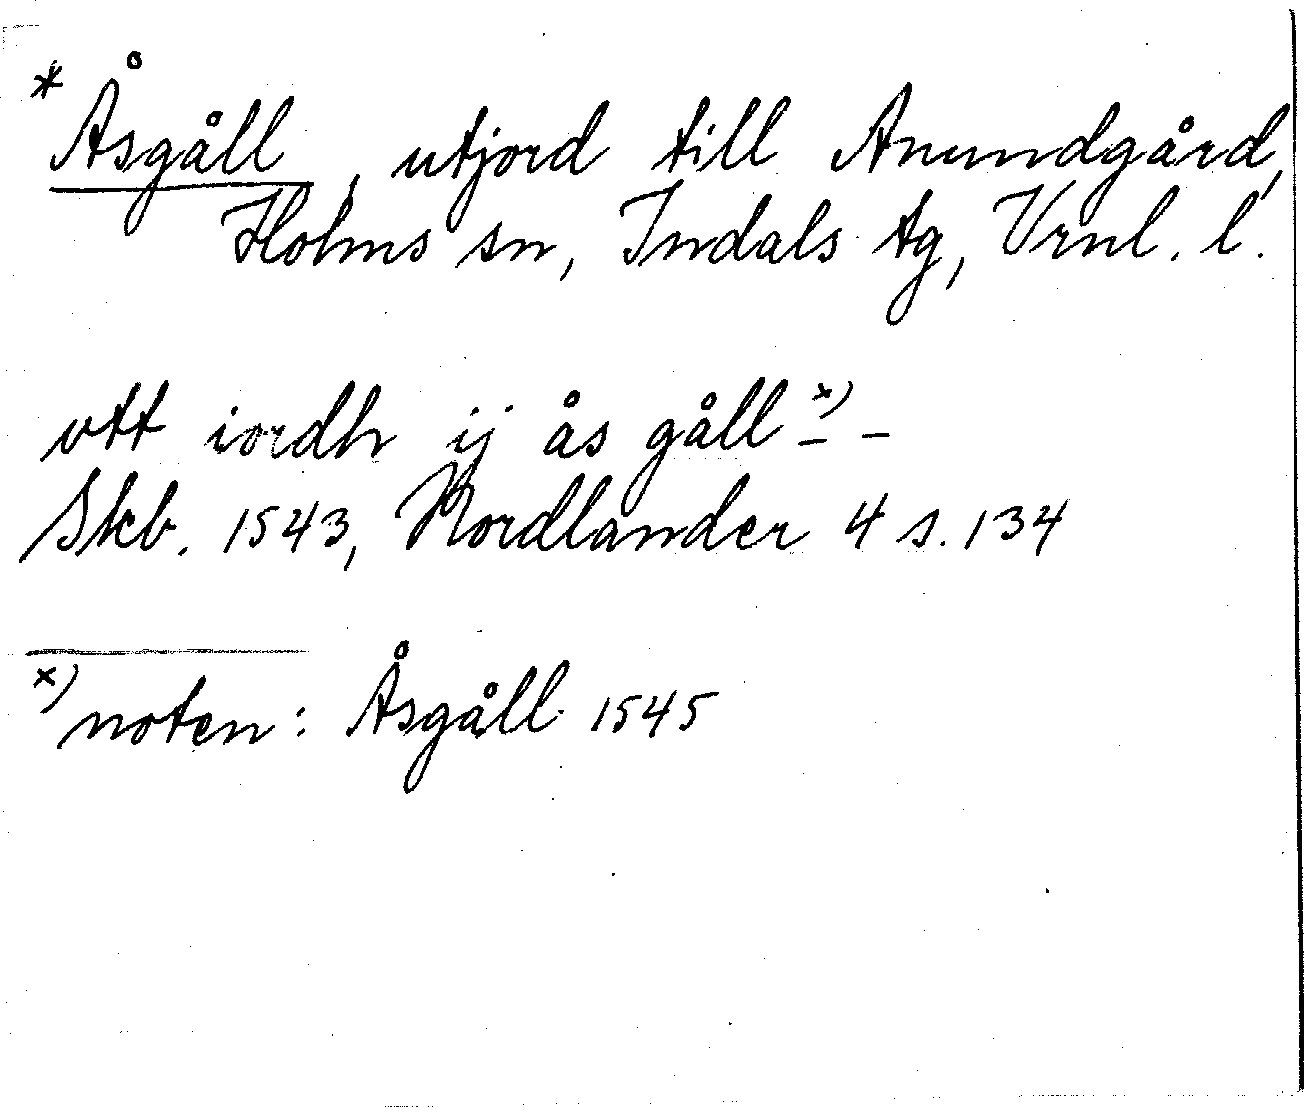 * Åsgåll, utjord till Anundgård,
Holms sn, Indals tg, Vrnl. l.
vtt iordh ij ås gåll x) – –
Skb. 1543, Nordlander 4 s. 134
x) noten: Åsgåll 1545